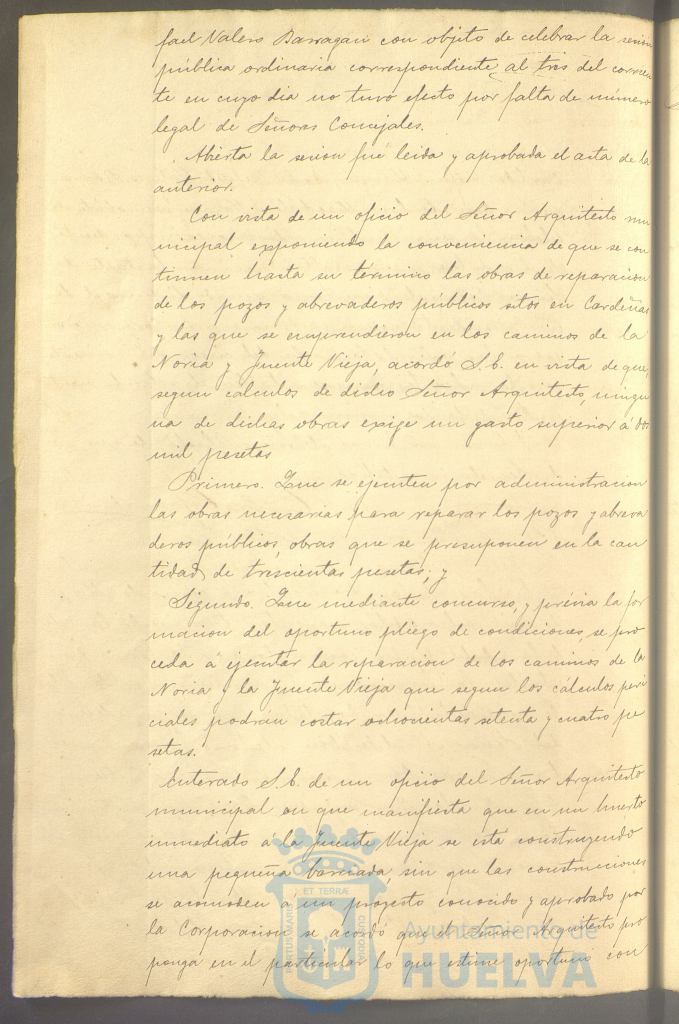 fael Valero Barragan con objeto de celebrar la sesion
pública ordinaria correspondiente al tres del corrien
te en cuyo dia no tuvo efecto por falta de número
legal de Señores Concejales.
Abierta la sesion fué leida y aprobada el acta de la
anterior.
Con vista de un oficio del Señor Arquitecto mu
nicipal exponiendo la conveniencia de que se con
tinuen hasta su término las obras de reparacion
de los pozos y abrevaderos públicos sitos en Cardeñas
y las que se emprendieron en los caminos de la
Noria y Fuente Vieja, acordó S.E. en vista de que,
segun cálculos de dicho Señor Arquitecto, ningu
na de dichas obras exige un gasto superior á dos
mil pesetas
Primero. Que se ejecuten por administracion
las obras necesarias para reparar los pozos y abreva
deros públicos, obras que se presuponen en la can
tidad de trescientas pesetas; y
Segundo. Que mediante concurso, y prévia la for
macion del oportuno pliego de condiciones, se pro
ceda á ejecutar la reparacion de los caminos de la
Noria y la Fuente Vieja que segun los cálculos peri
ciales podrán costar ochocientas setenta y cuatro pe
setas.
Enterado S.E. de un oficio del Señor Arquitecto
municipal en que manifiesta que en un huerto
inmediato á la Fuente Vieja se está construyendo
una pequeña barriada, sin que las construcciones
se acomoden á un proyecto conocido y aprobado por
la Corporacion se acordó que el Señor Arquitecto pro
ponga en el particular lo que estime oportuno con
PORTUS MARIS ET TERRÆ CUSTODIA
Ayuntamiento de
HUELVA